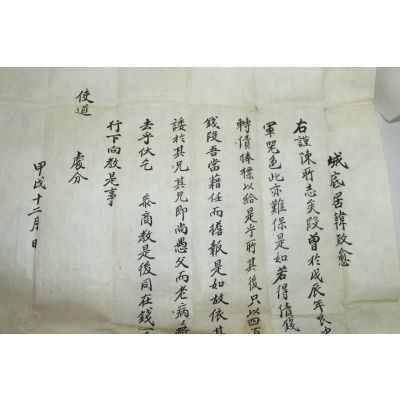 城底居韓致愈
右謹陳所志矣段曾於戊辰年
軍器色此亦難保是如若得債錢
轉債捧標以給是乎所其後只以四百
錢段吾當藉任而擔報是如故依其
諉於其兄其兄卽尚愚父而老病
去乎伏乞 參商教是後同在錢
行下向教是事
使道 處分
甲戌十二月 日